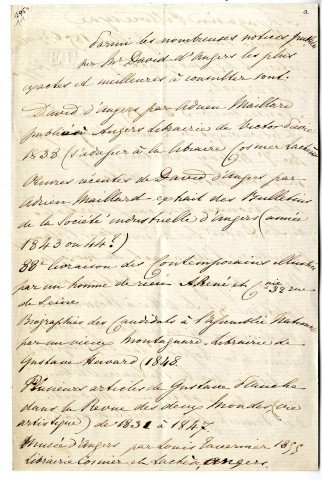 Parmi les nombreuses notices publiées
sur Mr David d'Angers les plus
exactes et meilleures à consulter sont.
David d'Angers par Adrien Maillard
publié Angers librairie de Victor
1838 (s'adresser à la libraire Cosnier Lachèse
Oeuvres récentes de David d'Angers par
Adrien Maillard extrait des Bulletins
de la Société industrielle d'Angers (année
1843 ou 44?)
88e livraison des Contemporains illustres
par un homme de rien A René et Cie 32 rue
de Seine
Biographies des Candidats à l'assemblée Nationale
par un vieux Montagnard. librairie de
Gustave Havard (1848.
Plusieurs articles de Gustave Planche
dans la Revue des deux Mondes (vie
artistique) de 1831 à 1847.
Musée d'Angers par Louis Tavernier 1855
librairie Cosnier et Lachèse Angers.